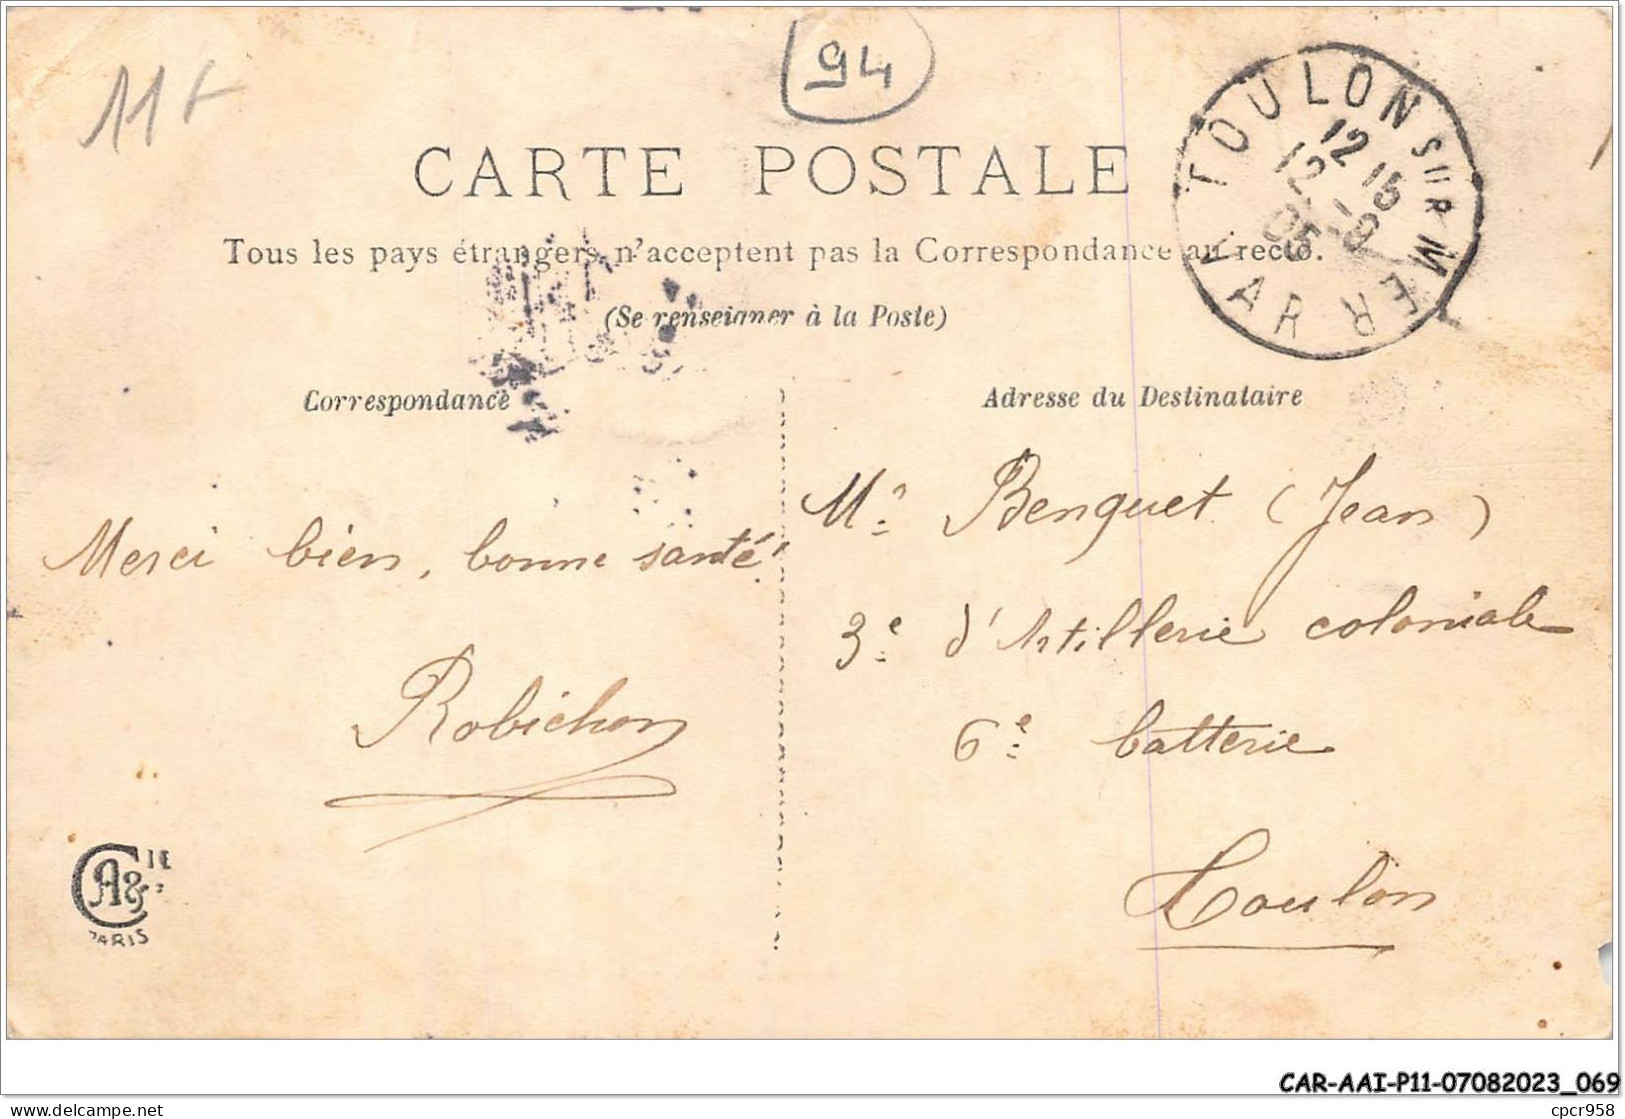 11f
94
CARTE POSTALE
TOULON SUR MER
12 15
12 - 9
05
VAR
Tous les pays étrangers n'acceptent pas la Correspondance au recto.
(Se renseigner à la Poste)
Correspondance
Adresse du Destinataire
Merci bien, bonne santé!
Robichon
Mr Benguet (Jean)
3e d'Artillerie coloniale
6e batterie
Toulon
CA & CIE
PARIS
CAR-AAI-P11-07082023_069
delcampe.net
cpcr958